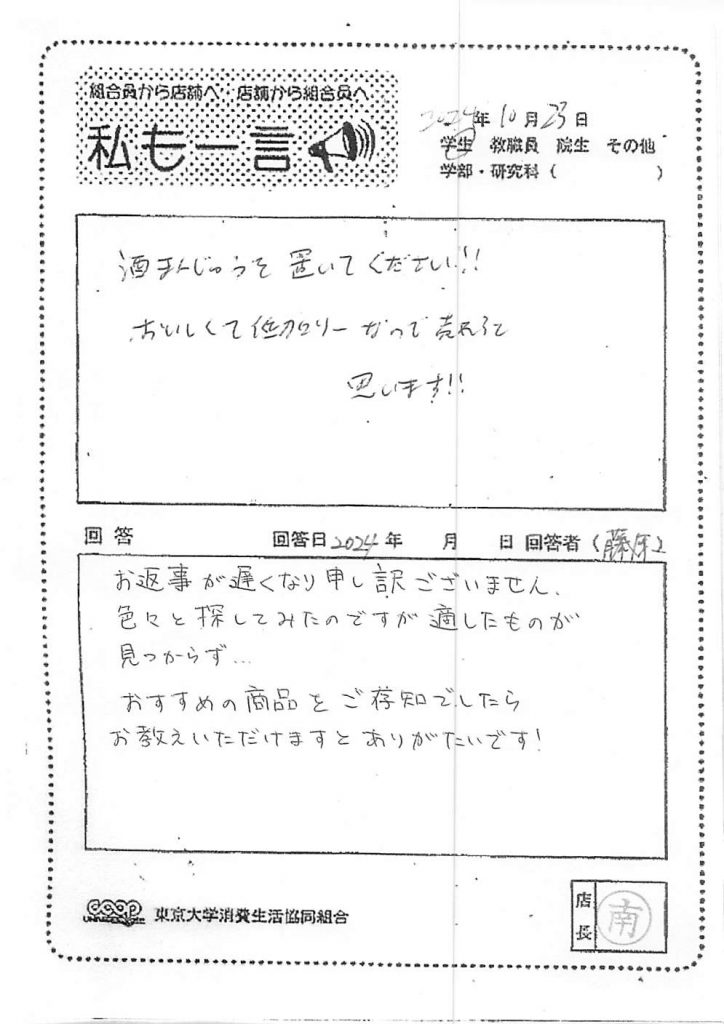 組合員から店舗へ 店舗から組合員へ
私も一言
2024年10月23日
学生 教職員 院生 その他
学部・研究科( )
酒まんじゅうを置いてください!!
おいしくて低カロリーなので売れると
思います!!
回答 回答日2024年 月 日 回答者(藤原)
お返事が遅くなり申し訳ございません、
色々と探してみたのですが適したものが
見つからず…
おすすめの商品をご存知でしたら
お教えいただけますとありがたいです!
東京大学消費生活協同組合
店長
南